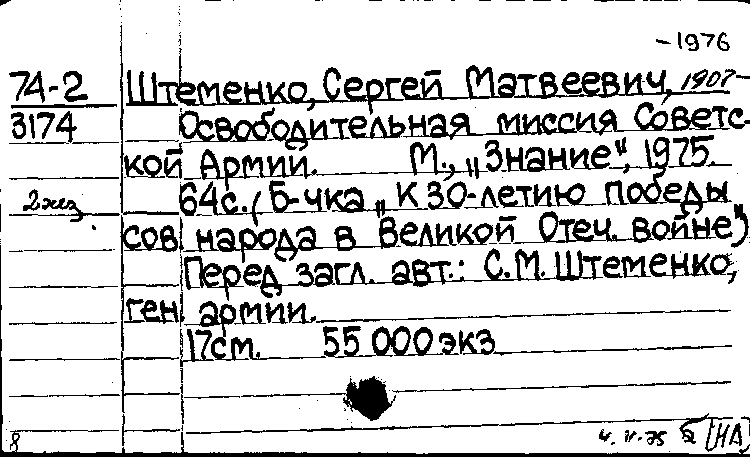 -1976
74-2 Штеменко, Сергей Матвеевич, 1907-
3174 Освободительная миссия Советс-
кой Армии. М., „Знание“, 1975.
2 экз. 64с. (Б-чка „К 30-летию победы
сов. народа в Великой Отеч. войне“)
Перед загл. авт.: С.М. Штеменко,
ген. армии.
17см. 55 000 экз
8 [НА]